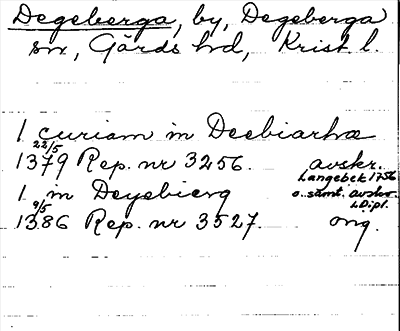 Degeberga, by, Degeberga
sn, Gärds hd, Krist. l.
1 curiam in Deebiarhæ
22/5
1379 Rep. nr 3256. avskr.
Langebek 1756
1 in Deyebierg o. samt. avskr.
9/5 i D.ipl.
1386 Rep. nr 3527. orig.